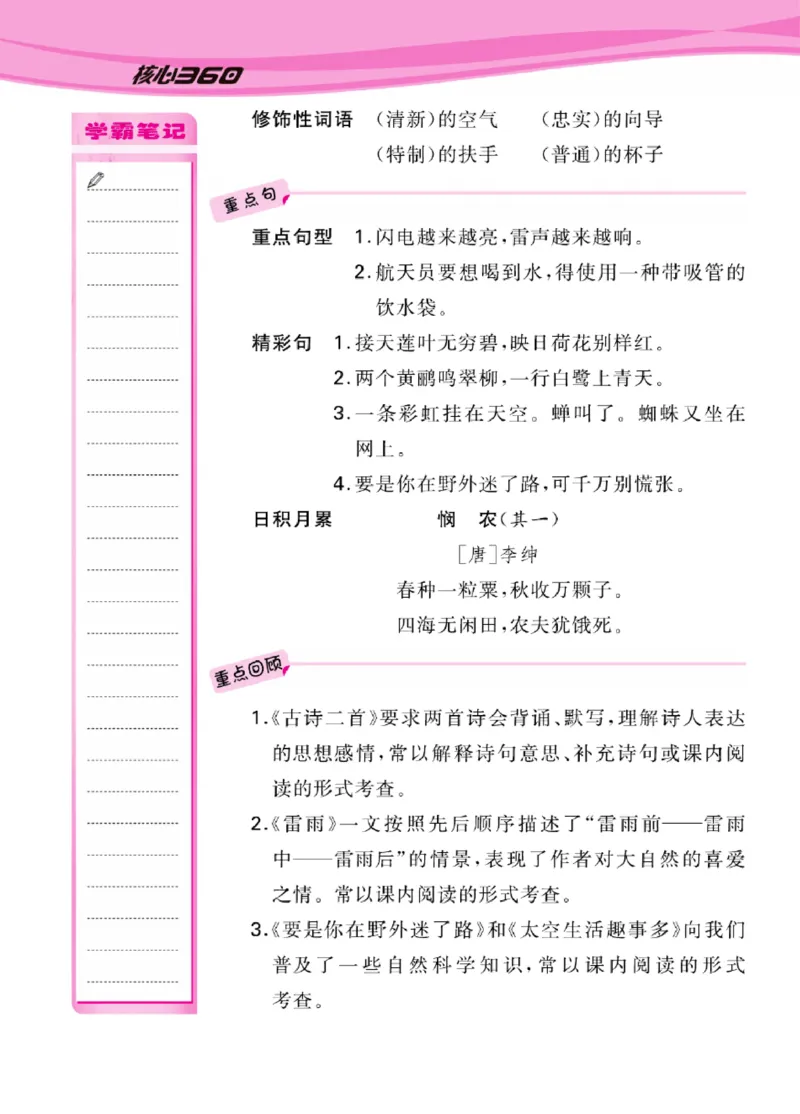 核心360
学霸笔记
修饰性词语 （清新）的空气 （忠实）的向导
（特制）的扶手 （普通）的杯子
重点句
重点句型 1.闪电越来越亮，雷声越来越响。
2.航天员要想喝到水，得使用一种带吸管的
饮水袋。
精彩句 1.接天莲叶无穷碧，映日荷花别样红。
2.两个黄鹂鸣翠柳，一行白鹭上青天。
3.一条彩虹挂在天空。蝉叫了。蜘蛛又坐在
网上。
4.要是你在野外迷了路，可千万别慌张。
日积月累 悯 农（其一）
［唐］李绅
春种一粒粟，秋收万颗子。
四海无闲田，农夫犹饿死。
重点回顾
1.《古诗二首》要求两首诗会背诵、默写，理解诗人表达
的思想感情，常以解释诗句意思、补充诗句或课内阅
读的形式考查。
2.《雷雨》一文按照先后顺序描述了“雷雨前——雷雨
中——雷雨后”的情景，表现了作者对大自然的喜爱
之情。常以课内阅读的形式考查。
3.《要是你在野外迷了路》和《太空生活趣事多》向我们
普及了一些自然科学知识，常以课内阅读的形式
考查。